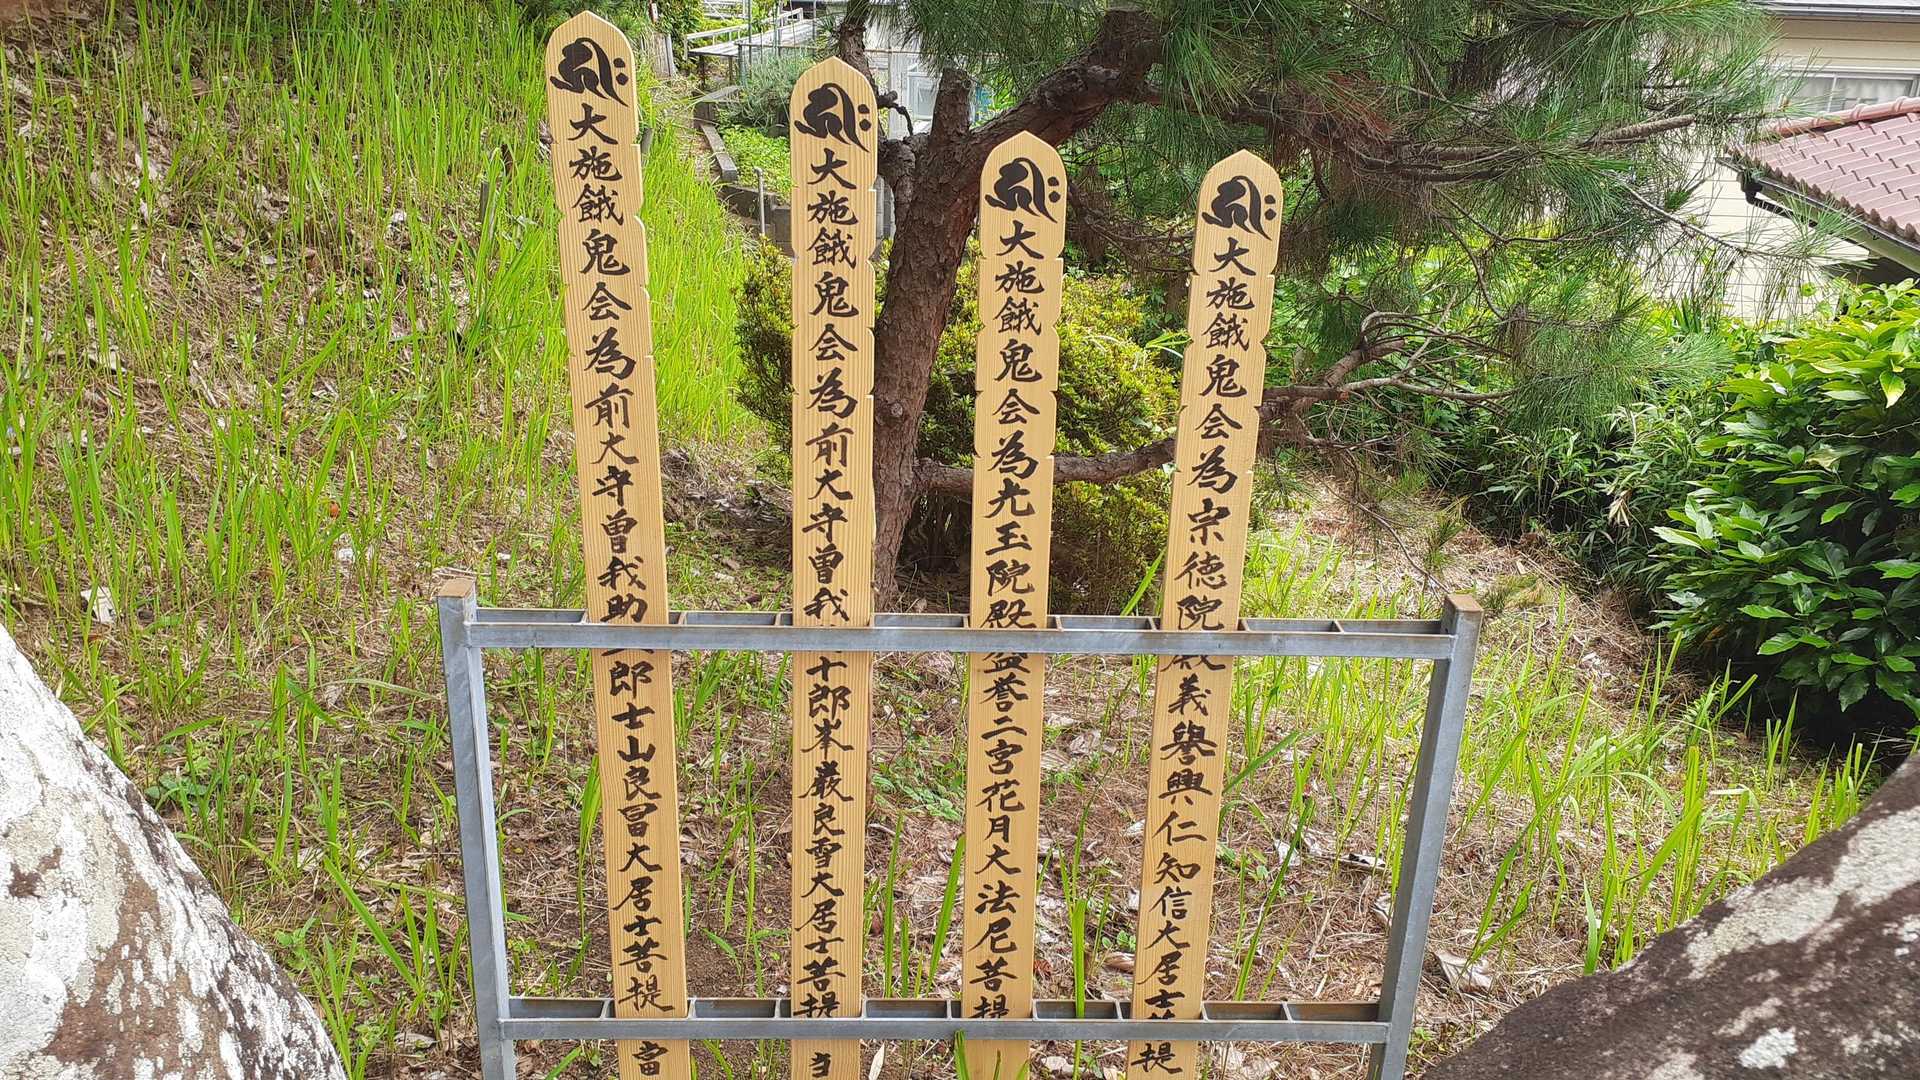 大施餓鬼会為宗徳院殿義譽興仁知信大居士菩提
大施餓鬼会為光玉院殿益誉二宮花月大法尼菩提
大施餓鬼会為前大守曽我十郎峯巌良雪大居士菩提 当
大施餓鬼会為前大守曽我助五郎士山良冒大居士菩提 當